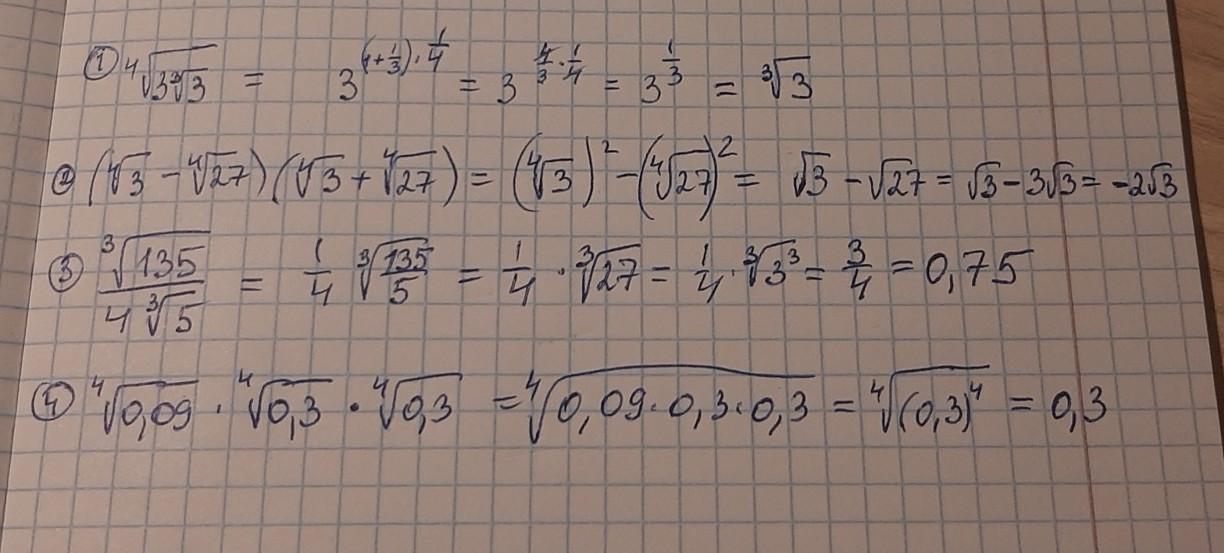 ① ⁴√(3∛3) = 3^((1+1/3)·1/4) = 3^(4/3·1/4) = 3^(1/3) = ∛3
② (⁴√3 − ⁴√27)(⁴√3 + ⁴√27) = (⁴√3)² − (⁴√27)² = √3 − √27 = √3 − 3√3 = −2√3
③ ∛135/(4∛5) = 1/4 ∛(135/5) = 1/4 · ∛27 = 1/4 · ∛(3³) = 3/4 = 0,75
④ ⁴√0,09 · ⁴√0,3 · ⁴√0,3 = ⁴√(0,09·0,3·0,3) = ⁴√((0,3)⁴) = 0,3